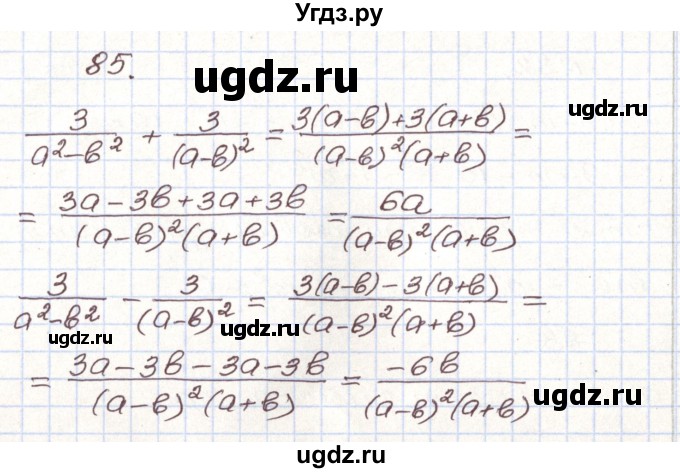 Угдз.ру
85.
ugdz.ru
ugdz.ru
3/(a²-в²) + 3/(a-в)² = (3(a-в)+3(a+в))/((a-в)²(a+в)) =
= (3a-3в+3a+3в)/((a-в)²(a+в)) = 6a/((a-в)²(a+в))
3/(a²-в²) - 3/(a-в)² = (3(a-в)-3(a+в))/((a-в)²(a+в)) =
ugdz.ru
ugdz.ru
= (3a-3в-3a-3в)/((a-в)²(a+в)) = -6в/((a-в)²(a+в))
ugdz.ru
ugdz.ru